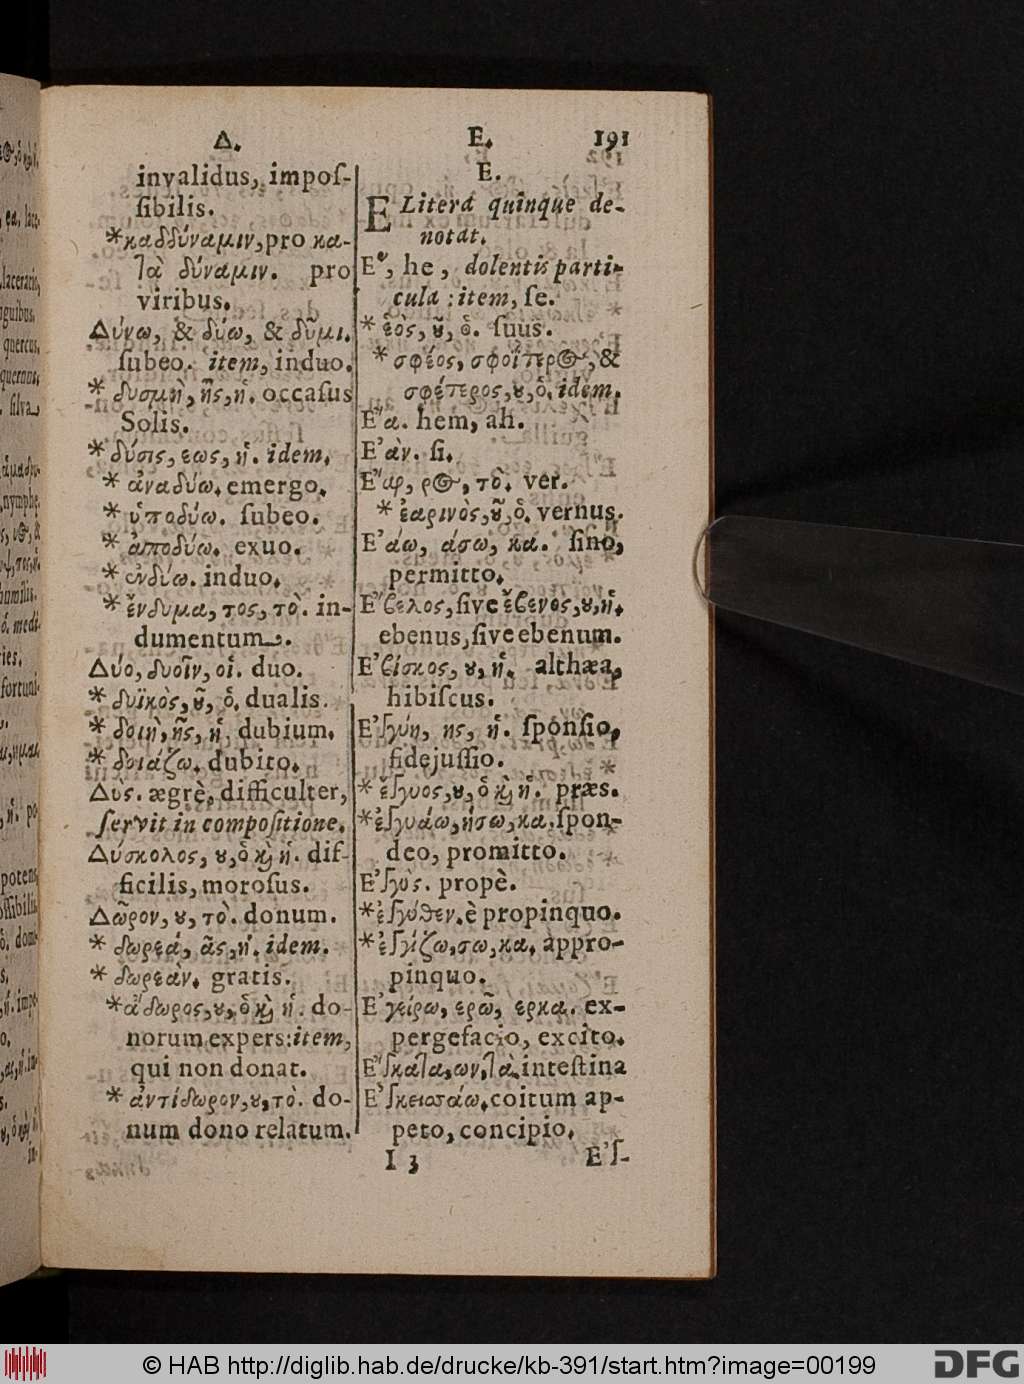 Δ. E. 191
invalidus, impoſ-
ſibilis.
*καδδύναμιν, pro κα-
τὰ δύναμιν. pro
viribus.
Δύνω, & δύω, & δῦμι.
ſubeo. item, induo.
* δυσμὴ, ῆς, ἡ. occaſus
Solis.
* δύσις, εως, ἡ. idem.
* ἀναδύω. emergo.
* ὑποδύω. ſubeo.
* ἀποδύω. exuo.
* ἐνδύω. induo.
* ἔνδυμα, τος, τὸ. in-
dumentum.
Δύο, δυοῖν, οἱ. duo.
* δυϊκὸς, ȣ͂, ὁ. dualis.
* δοιὴ, ῆς, ἡ. dubium.
* δοιάζω. dubito.
Δὺς. ægrè, difficulter,
ſervit in compoſitione.
Δύσκολος, ȣ, ὁ κ̀ ἡ. dif-
ficilis, moroſus.
Δῶρον, ȣ, τὸ. donum.
* δωρεά, ᾶς, ἡ. idem.
* δωρεὰν. gratis.
*ἄδωρος, ȣ, ὁ κ̀ ἡ. do-
norum expers: item,
qui non donat.
* ἀντίδωρον, ȣ, τὸ. do-
num dono relatum.
E.
E Litera quinque de-
notat.
Eʽ, he, dolentis parti-
cula: item, ſe.
* ἑὸς, ȣ͂, ὁ. ſuus.
* σφέος, σφοΐτερος, &
σφέτερος, ȣ, ὁ. idem.
Ἔα. hem, ah.
Ἐὰν. ſi.
Ἔαρ, ρος, τὸ. ver.
* ἐαρινὸς, ȣ͂, ὁ. vernus.
Ἐάω, άσω, κα. ſino,
permitto.
Ἔβελος, ſive ἔβενος, ȣ, ἡ.
ebenus, ſive ebenum.
Ἐβίσκος, ȣ, ἡ. althæa,
hibiſcus.
Ἐγγύη, ης, ἡ. ſponſio,
fidejuſſio.
* ἔγγυος, ȣ, ὁ κ̀ ἡ. præs.
*ἐγγυάω, ήσω, κα. ſpon-
deo, promitto.
Ἐγγὺς. propè.
*ἐγγύθεν. è propinquo.
*ἐγγίζω, σω, κα. appro-
pinquo.
Ἐγείρω, ερῶ, ερκα. ex-
pergefacio, excito.
Ἔγκατα, ων, τὰ. inteſtina
Ἐγκισσάω. coitum ap-
peto, concipio.
I 3 Ἐγ-
© HAB http://diglib.hab.de/drucke/kb-391/start.htm?image=00199
DFG